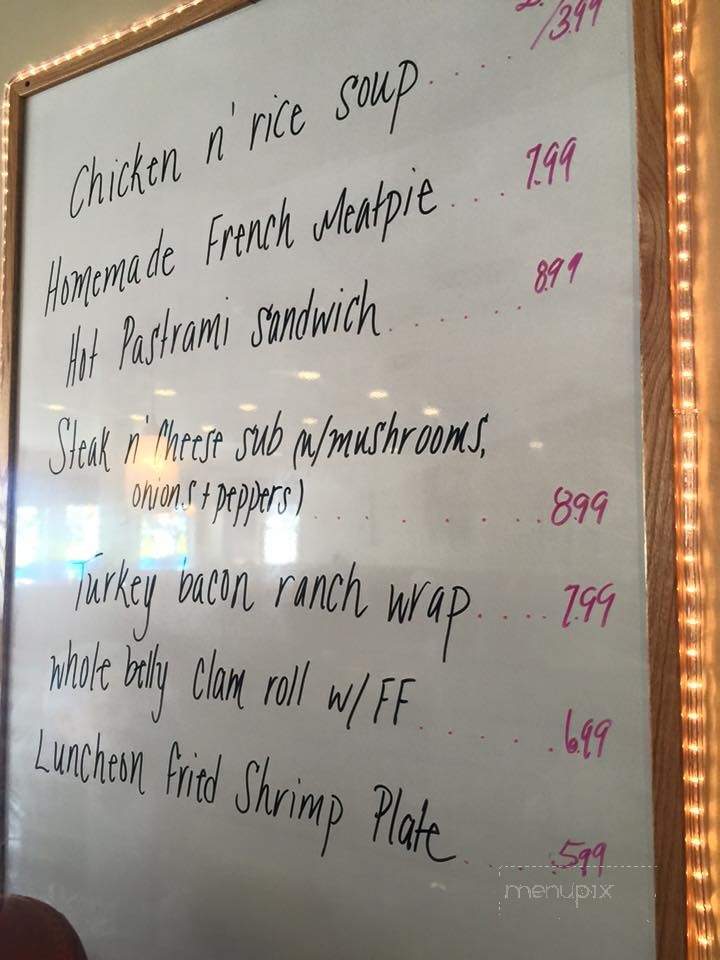 /3.99
Chicken n' rice soup.....
Homemade French Meatpie... 7.99
Hot Pastrami sandwich...... 8.99
Steak n' Cheese sub (w/mushrooms,
onions + peppers)...... 8.99
Turkey bacon ranch wrap.... 7.99
whole belly clam roll w/FF..... 6.99
Luncheon fried Shrimp Plate.... 5.99
menupix